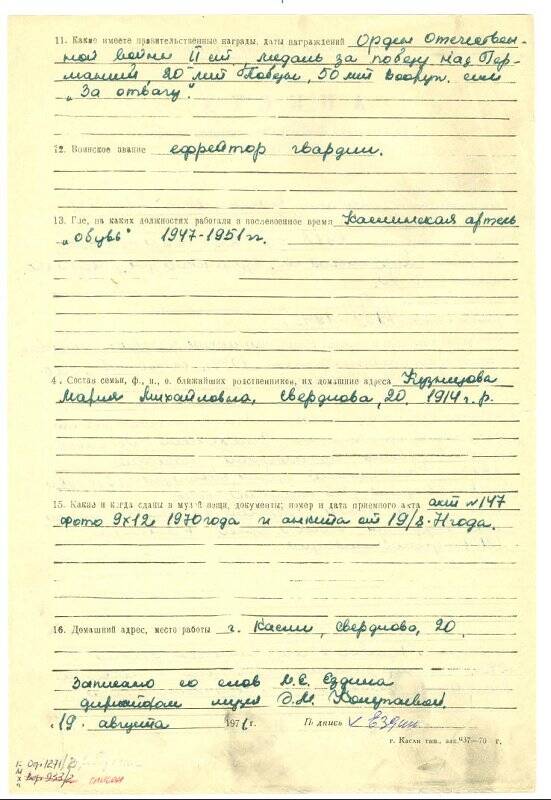 11. Какие имеете правительственные награды, даты награждений Орден Отечествен-
ной войны II ст, медаль за победу над Гер-
манией, 20 лет Победы, 50 лет Вооруж. сил
„За отвагу".
12. Воинское звание ефрейтор гвардии.
13. Где, на каких должностях работали в послевоенное время Каслинская артель
„Обувь" 1947-1951 гг.
4. Состав семьи, ф., и., о. ближайших родственников, их домашние адреса Кузнецова
Мария Михайловна, Свердлова, 20, 1914 г.р.
15. Какие и когда сданы в музей вещи, документы; номер и дата приемного акта акт №147
фото 9х12, 1970 года и анкета от 19/8-71 года.
16. Домашний адрес, место работы г. Касли, Свердлова, 20.
Записано со слов М.Е. Ездина
директором музея
« 19. августа 1971 г. Подпись Ездин
г. Касли тип., зак. 937—70 г.
Оф-1271/